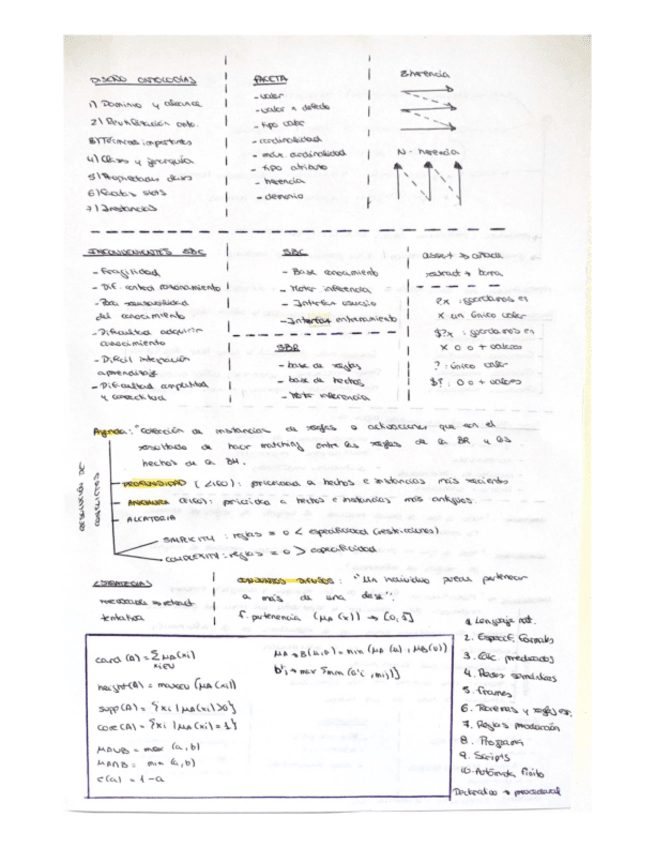 DISEÑO ONTOLOGÍAS
1) Dominio y alcance
2) Reutilización onto.
3) Términos importantes
4) Clases y jerarquía
5) Propiedades clases
6) Facetas slots
7) Instancias
FACETA
- valor
- valor x defecto
- tipo valor
- cardinalidad
- máx cardinalidad
- tipo atributo
- herencia
- demonio
Z-herencia
N - herencia
INCONVENIENTES SBC
- Fragilidad
- Dif. control razonamiento
- Poca reusabilidad
del conocimiento
- Dificultad adquirir
conocimiento
- Difícil integración
aprendizaje
- Dificultad amplitud
y
SBC
- Base conocimiento
- Motor inferencia
- Interfaz usuario
- Interfaz entrenamiento
SBR
- base de reglas
- base de hechos
- Motor inferencia
assert → añade
retract → borra
?x : guardamos en
x un único valor
$?x : guardamos en
x 0 o + valores
? : único valor
$? : 0 o + valores
Agenda: "Colección de instancias de reglas o activaciones que son el
resultado de hacer matching entre las reglas de la BR y los
hechos de la BH.
RESOLUCIÓN DE
CONFLICTOS
PROFUNDIDAD (LIFO): prioridad a hechos e instancias más reciente
ANCHURA (FIFO): prioridad a hechos e instancias más antiguos.
ALEATORIA
SIMPLICITY : reglas = o < especificidad (restricciones)
COMPLEXITY : reglas = o > especificidad
ESTRATEGIAS
irrevocable → retract
tentativa
CONJUNTOS DIFUSOS : "Un individuo puede pertenecer
a más de una clase".
f. pertenencia (μA (x)) →
card (A) = Σ μA(xi)
xi∈U
height(A) = maxxεU (μA(xi))
supp(A) = {xi | μA(xi)>0}
core(A) = {xi | μA(xi) = 1}
μAUB = max (a, b)
μA∩B = min (a, b)
c(a) = 1 - a
μA→B(u,v) = min (μA (u), μB(v))
b'j = max {min (a'i, mij)}
1. Lenguaje nat.
2. Especif. Formales
3. Cálc. predicados
4. Redes semánticas
5. Frames
6. Teoremas y
7. Reglas producción
8. Programa
9. Scripts
10. Autómata finito
Declarativo → procedural